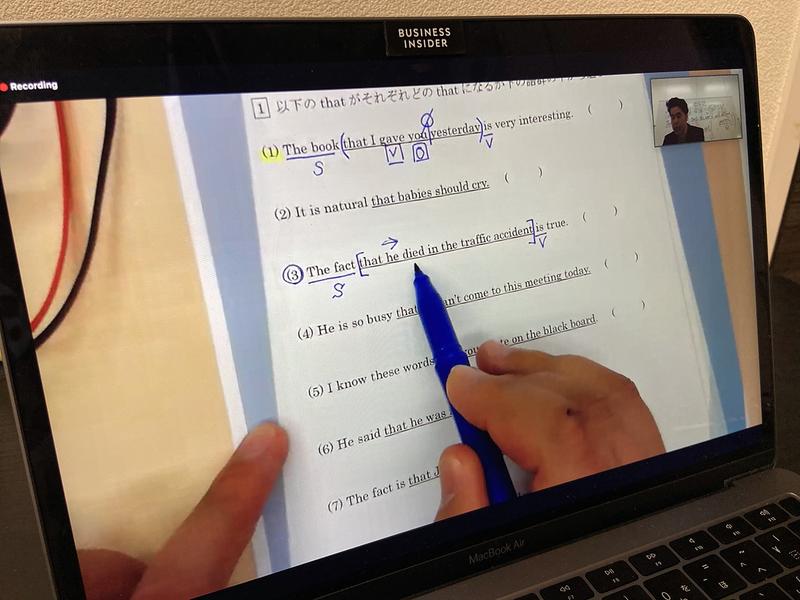 BUSINESS
INSIDER
Recording
1 以下の that がそれぞれどの that になるか下の語群の中から
(1) The book (that I gave you φ yesterday) is very interesting. ( )
S V O V
(2) It is natural that babies should cry. ( )
(3) The fact [that he died in the traffic accident] is true. ( )
→
S V
(4) He is so busy that can't come to this meeting today. ( )
(5) I know these words on the black board. ( )
(6) He said that he was
(7) The fact is that J
MacBook Air